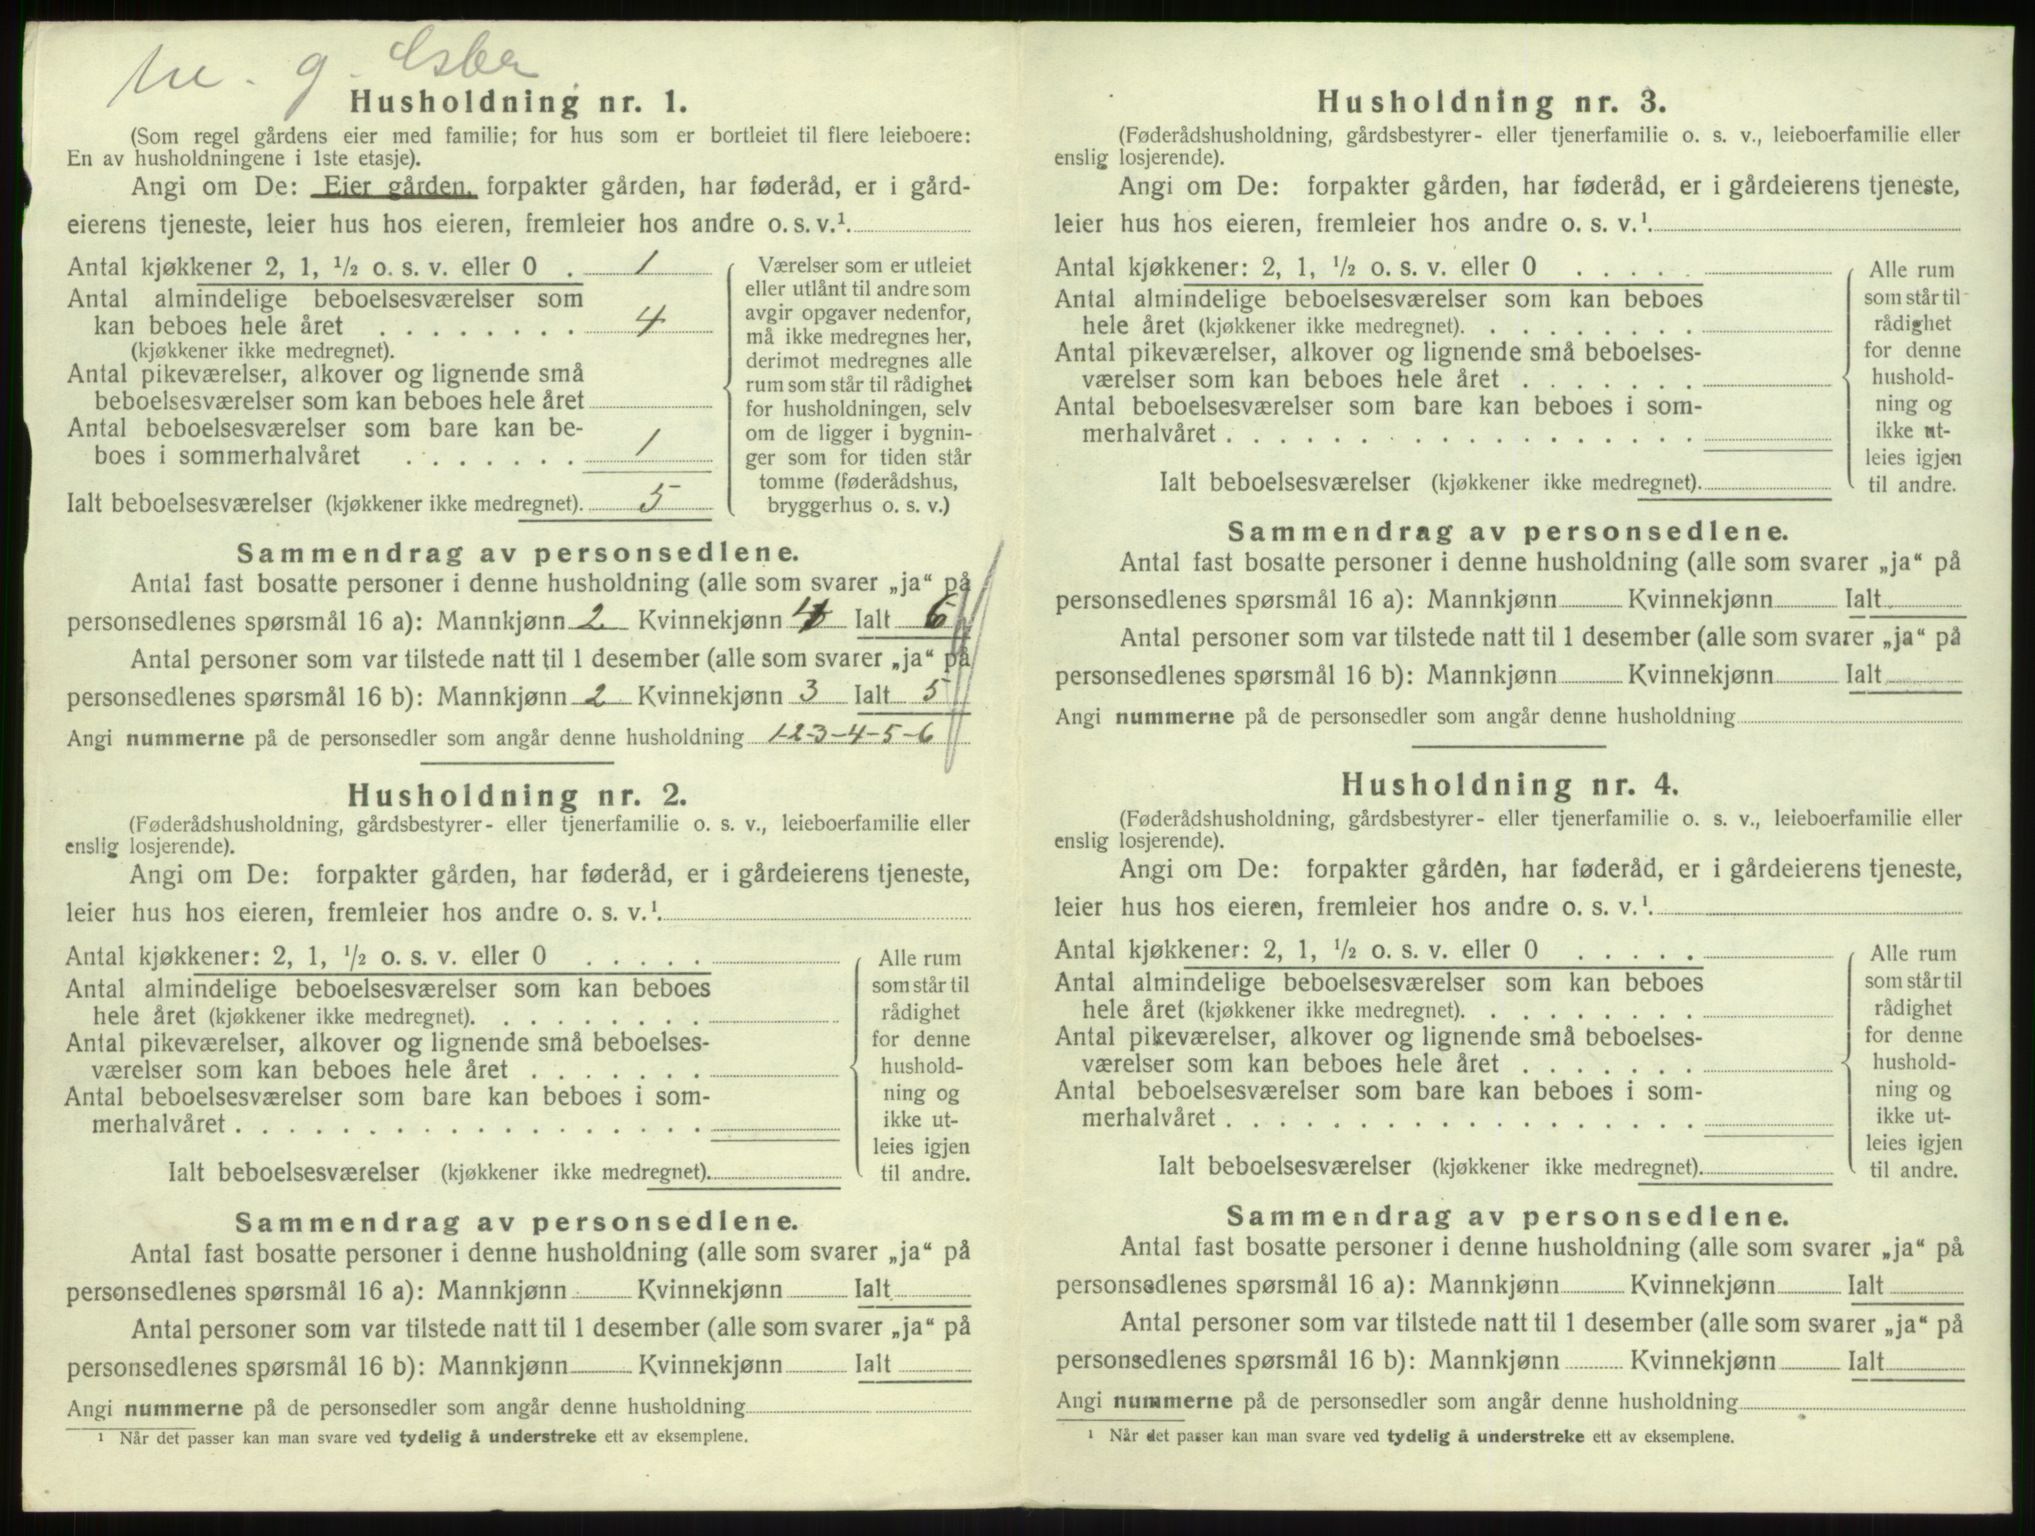 Husholdning nr. 1.
(Som regel gårdens eier med familie; for hus som er bortleiet til flere leieboere:
En av husholdningene i 1ste etasje).
Angi om De: Eier gården, forpakter gården, har føderåd, er i gård-
eierens tjeneste, leier hus hos eieren, fremleier hos andre o. s. v.¹.
Antal kjøkkener 2, 1, ½ o. s. v. eller 0 . 1
Antal almindelige beboelsesværelser som
kan beboes hele året . . . . . . . . 4
(kjøkkener ikke medregnet).
Antal pikeværelser, alkover og lignende små
beboelsesværelser som kan beboes hele året
Antal beboelsesværelser som bare kan be-
boes i sommerhalvåret . . . . . . . 1
Ialt beboelsesværelser (kjøkkener ikke medregnet). 5
Værelser som er utleiet
eller utlånt til andre som
avgir opgaver nedenfor,
må ikke medregnes her,
derimot medregnes alle
rum som står til rådighet
for husholdningen, selv
om de ligger i bygnin-
ger som for tiden står
tomme (føderådshus,
bryggerhus o. s. v.)
Sammendrag av personsedlene.
Antal fast bosatte personer i denne husholdning (alle som svarer „ja“ på
personsedlenes spørsmål 16 a): Mannkjønn 2 Kvinnekjønn 4 Ialt 6
Antal personer som var tilstede natt til 1 desember (alle som svarer „ja“ på
personsedlenes spørsmål 16 b): Mannkjønn 2 Kvinnekjønn 3 Ialt 5
Angi nummerne på de personsedler som angår denne husholdning 1-2-3-4-5-6
Husholdning nr. 2.
(Føderådshusholdning, gårdsbestyrer- eller tjenerfamilie o. s. v., leieboerfamilie eller
enslig losjerende).
Angi om De: forpakter gården, har føderåd, er i gårdeierens tjeneste,
leier hus hos eieren, fremleier hos andre o. s. v.¹.
Antal kjøkkener: 2, 1, ½ o. s. v. eller 0 . . . . .
Antal almindelige beboelsesværelser som kan beboes
hele året (kjøkkener ikke medregnet). . . . . . . . .
Antal pikeværelser, alkover og lignende små beboelses-
værelser som kan beboes hele året . . . . . . .
Antal beboelsesværelser som bare kan beboes i som-
merhalvåret . . . . . . . . . . . . . . . . . .
Ialt beboelsesværelser (kjøkkener ikke medregnet).
Alle rum
som står til
rådighet
for denne
hushold-
ning og
ikke ut-
leies igjen
til andre.
Sammendrag av personsedlene.
Antal fast bosatte personer i denne husholdning (alle som svarer „ja“ på
personsedlenes spørsmål 16 a): Mannkjønn Kvinnekjønn Ialt
Antal personer som var tilstede natt til 1 desember (alle som svarer „ja“ på
personsedlenes spørsmål 16 b): Mannkjønn Kvinnekjønn Ialt
Angi nummerne på de personsedler som angår denne husholdning
¹ Når det passer kan man svare ved tydelig å understreke ett av eksemplene.
Husholdning nr. 3.
(Føderådshusholdning, gårdsbestyrer- eller tjenerfamilie o. s. v., leieboerfamilie eller
enslig losjerende).
Angi om De: forpakter gården, har føderåd, er i gårdeierens tjeneste,
leier hus hos eieren, fremleier hos andre o. s. v.¹.
Antal kjøkkener: 2, 1, ½ o. s. v. eller 0 . . . . .
Antal almindelige beboelsesværelser som kan beboes
hele året (kjøkkener ikke medregnet). . . . . . . . .
Antal pikeværelser, alkover og lignende små beboelses-
værelser som kan beboes hele året . . . . . . .
Antal beboelsesværelser som bare kan beboes i som-
merhalvåret . . . . . . . . . . . . . . . . . .
Ialt beboelsesværelser (kjøkkener ikke medregnet).
Alle rum
som står til
rådighet
for denne
hushold-
ning og
ikke ut-
leies igjen
til andre.
Sammendrag av personsedlene.
Antal fast bosatte personer i denne husholdning (alle som svarer „ja“ på
personsedlenes spørsmål 16 a): Mannkjønn Kvinnekjønn Ialt
Antal personer som var tilstede natt til 1 desember (alle som svarer „ja“ på
personsedlenes spørsmål 16 b): Mannkjønn Kvinnekjønn Ialt
Angi nummerne på de personsedler som angår denne husholdning
Husholdning nr. 4.
(Føderådshusholdning, gårdsbestyrer- eller tjenerfamilie o. s. v., leieboerfamilie eller
enslig losjerende).
Angi om De: forpakter gården, har føderåd, er i gårdeierens tjeneste,
leier hus hos eieren, fremleier hos andre o. s. v.¹.
Antal kjøkkener: 2, 1, ½ o. s. v. eller 0 . . . . .
Antal almindelige beboelsesværelser som kan beboes
hele året (kjøkkener ikke medregnet). . . . . . . . .
Antal pikeværelser, alkover og lignende små beboelses-
værelser som kan beboes hele året . . . . . . .
Antal beboelsesværelser som bare kan beboes i som-
merhalvåret . . . . . . . . . . . . . . . . . .
Ialt beboelsesværelser (kjøkkener ikke medregnet).
Alle rum
som står til
rådighet
for denne
hushold-
ning og
ikke ut-
leies igjen
til andre.
Sammendrag av personsedlene.
Antal fast bosatte personer i denne husholdning (alle som svarer „ja“ på
personsedlenes spørsmål 16 a): Mannkjønn Kvinnekjønn Ialt
Antal personer som var tilstede natt til 1 desember (alle som svarer „ja“ på
personsedlenes spørsmål 16 b): Mannkjønn Kvinnekjønn Ialt
Angi nummerne på de personsedler som angår denne husholdning
¹ Når det passer kan man svare ved tydelig å understreke ett av eksemplene.